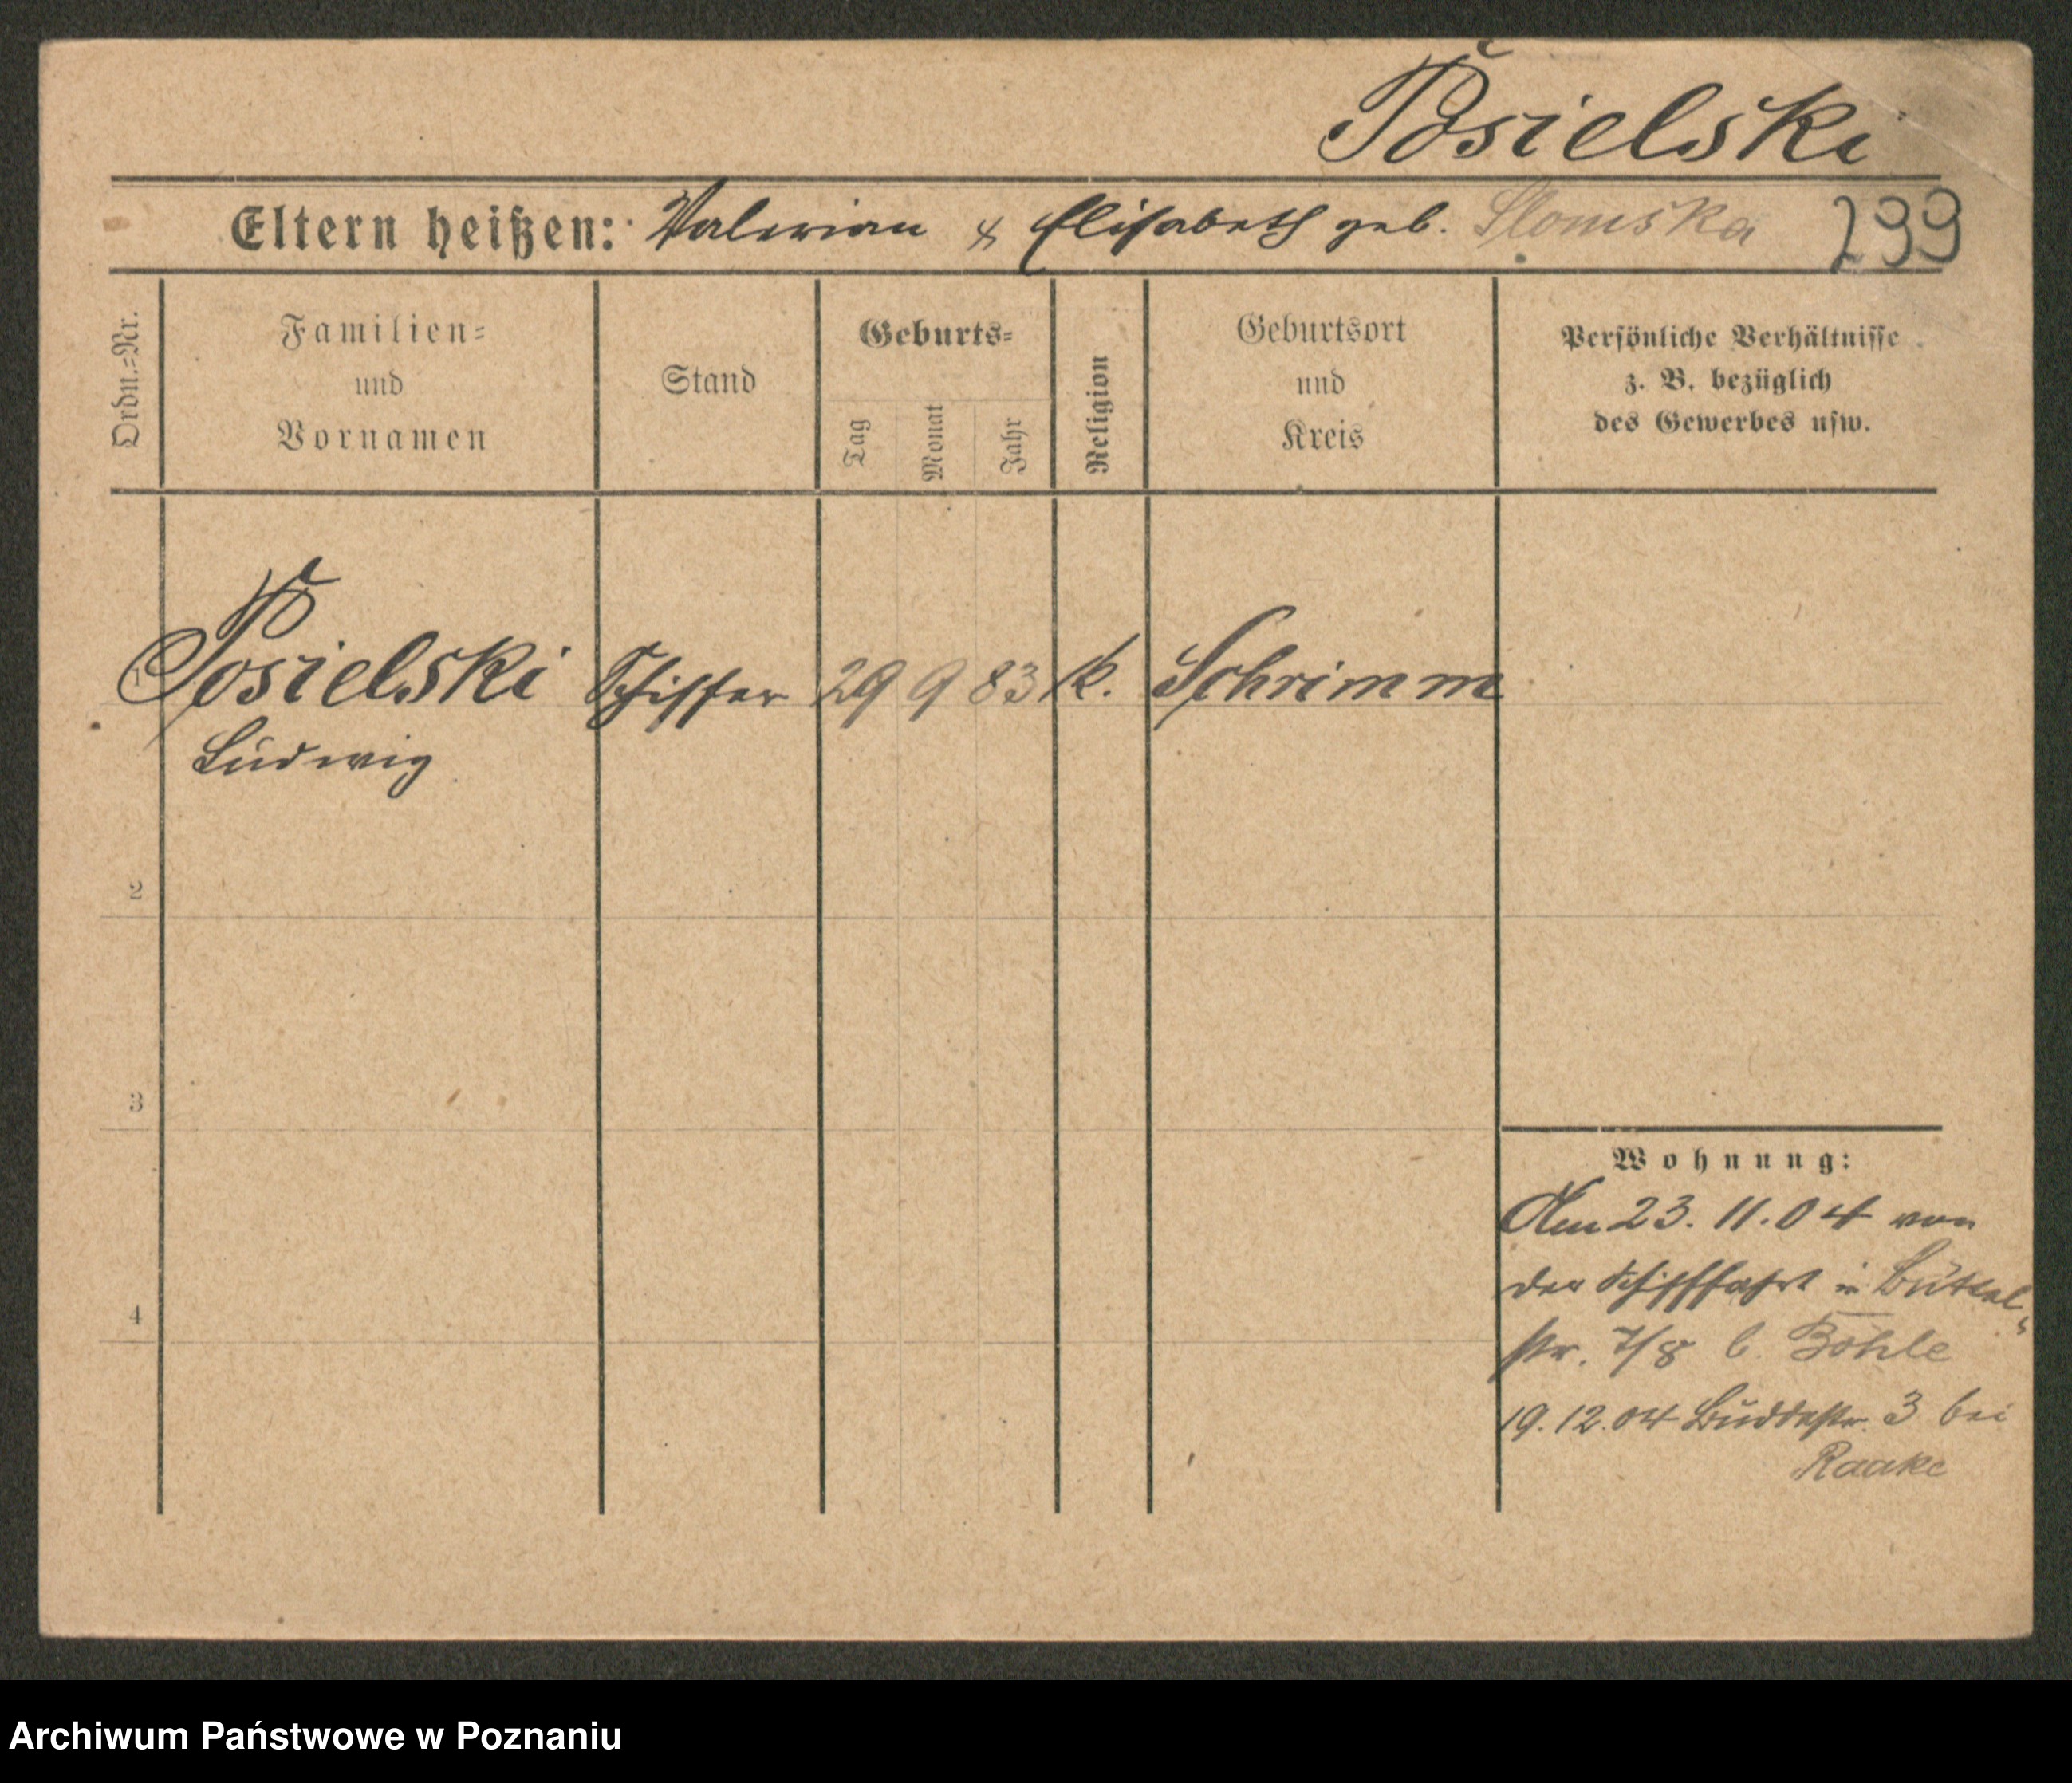 Posielski
Eltern heißen: Valerian & Elisabeth geb. Slomska 299
Ordn.=Nr.
Familien=
und
Vornamen
Stand
Geburts=
Tag
Monat
Jahr
Religion
Geburtsort
und
Kreis
Persönliche Verhältnisse
z. B. bezüglich
des Gewerbes usw.
1 Posielski Schiffer 29 9 83 k. Schrimm
Ludwig
2
3
Wohnung:
Am 23. 11. 04 von
der Schifffahrt in Büttel-
4
str. 7/8 b. Böhle
19. 12. 04 Buddestr. 3 bei
Raake
Archiwum Państwowe w Poznaniu